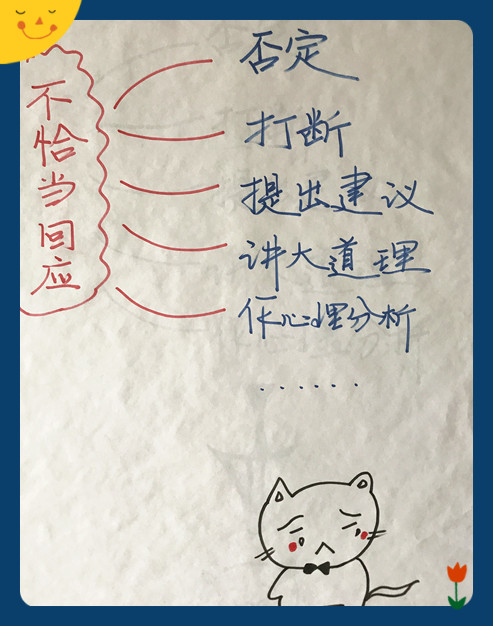 不恰当回应
否定
打断
提出建议
讲大道理
作心理分析
......